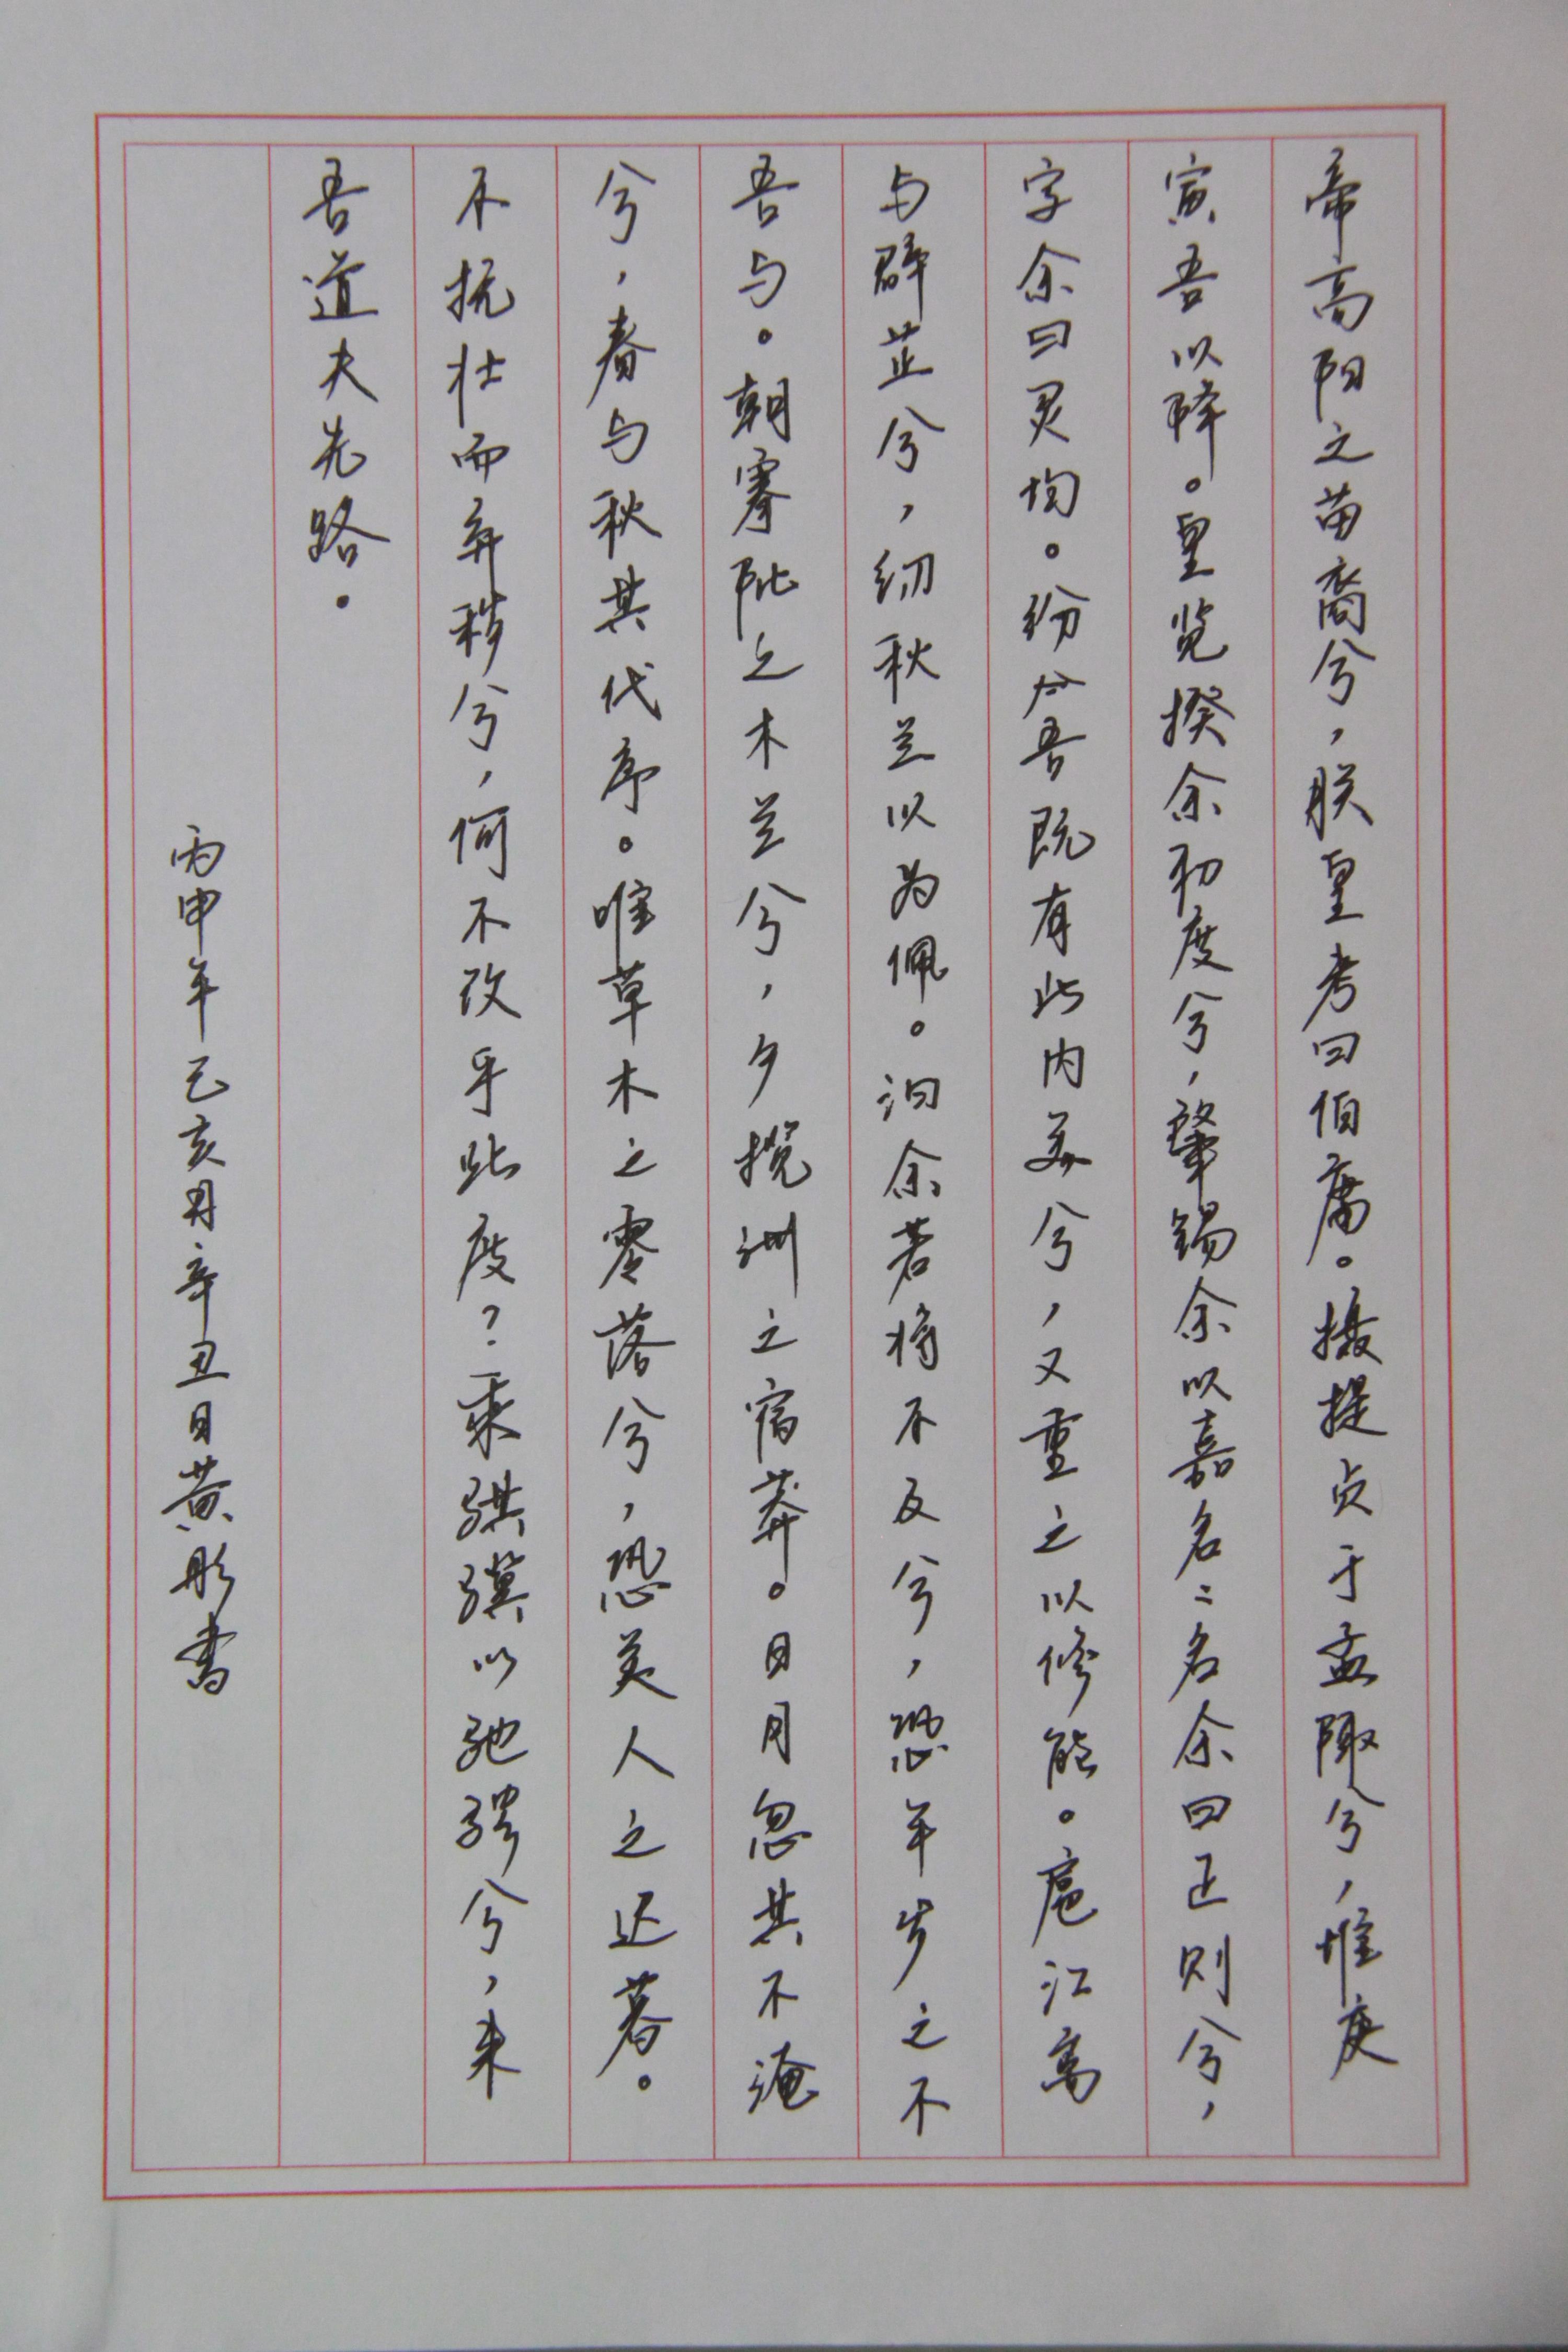 帝高阳之苗裔兮，朕皇考曰伯庸。摄提贞于孟陬兮，惟庚
寅吾以降。皇览揆余初度兮，肇锡余以嘉名：名余曰正则兮，
字余曰灵均。纷吾既有此内美兮，又重之以修能。扈江离
与辟芷兮，纫秋兰以为佩。汩余若将不及兮，恐年岁之不
吾与。朝搴阰之木兰兮，夕揽洲之宿莽。日月忽其不淹
兮，春与秋其代序。唯草木之零落兮，恐美人之迟暮。
不抚壮而弃秽兮，何不改乎此度？乘骐骥以驰骋兮，来
吾道夫先路。
丙申年己亥月辛丑日黄彤书